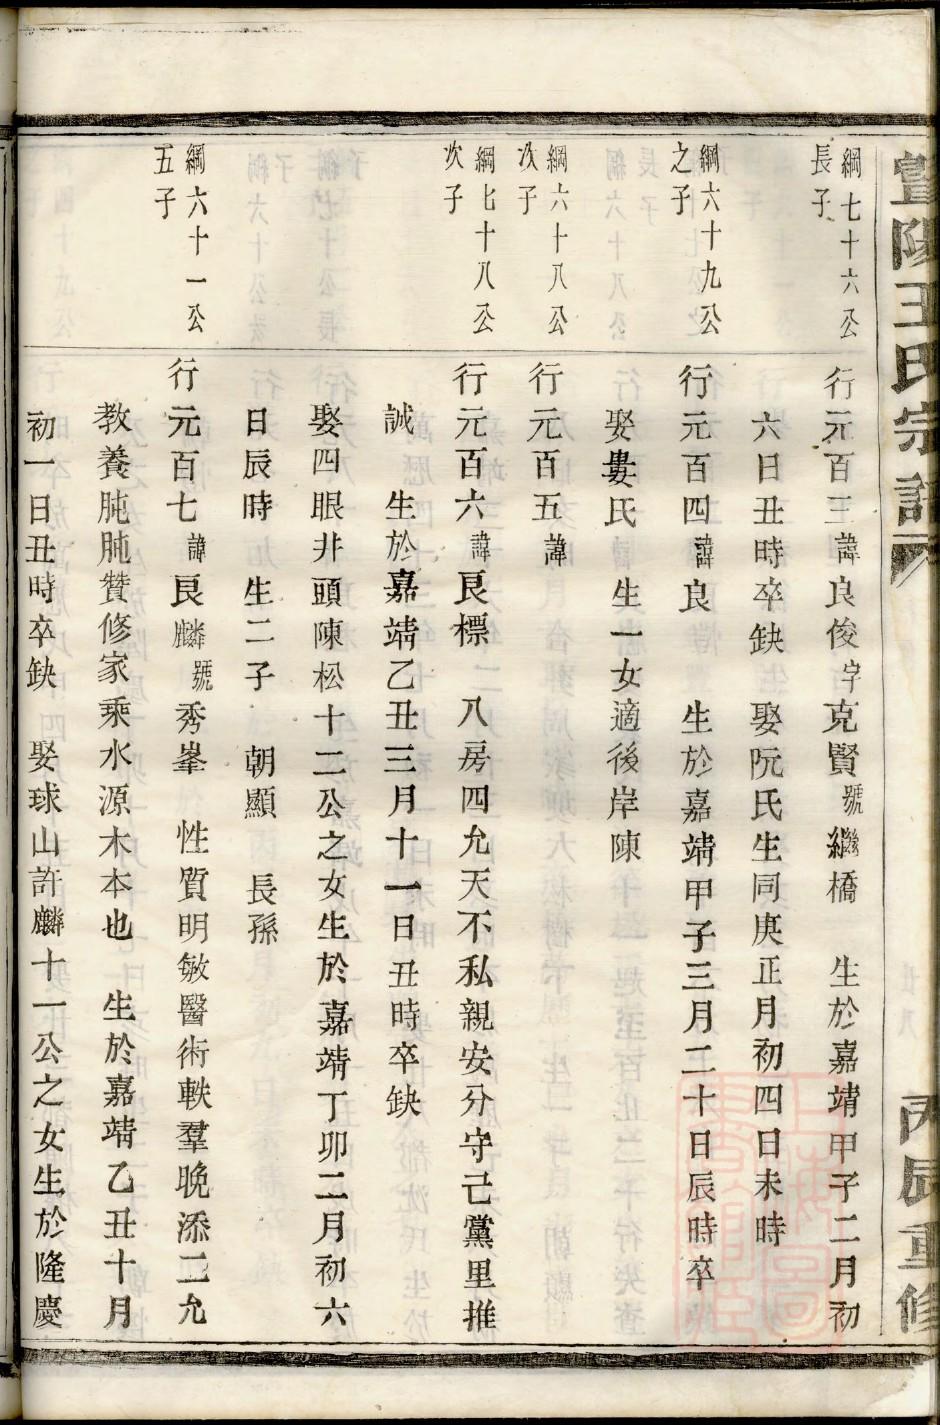 暨陽王氏宗譜
丙辰重修
綱七十六公
長子
行元百三諱良俊字克賢號繼橋 生於嘉靖甲子二月初
六日丑時卒缺 娶阮氏生同庚正月初四日未時
綱六十九公
之子
行元百四諱良 生於嘉靖甲子三月二十日辰時卒
娶婁氏 生一女適後岸陳
綱六十八公
次子
行元百五諱
綱七十八公
次子
行元百六諱良標 八房四允天不私親安分守己黨里推
誠 生於嘉靖乙丑三月十一日丑時卒缺
娶四眼井頭陳松十二公之女生於嘉靖丁卯二月初六
日辰時 生二子 朝顯 長孫
綱六十一公
五子
行元百七諱良麟號秀峯 性質明敏醫術軼羣晚添二允
教養肫肫贊修家乘水源木本也 生於嘉靖乙丑十月
初一日丑時卒缺 娶球山許麟十一公之女生於隆慶